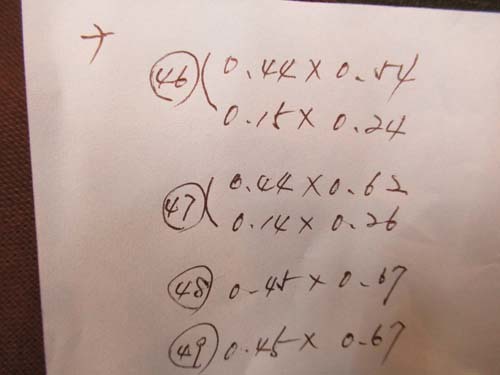 +
㊻ ( 0.44 × 0.54
0.15 × 0.24
㊼ ( 0.44 × 0.62
0.14 × 0.26
㊽ 0.45 × 0.67
㊾ 0.45 × 0.67